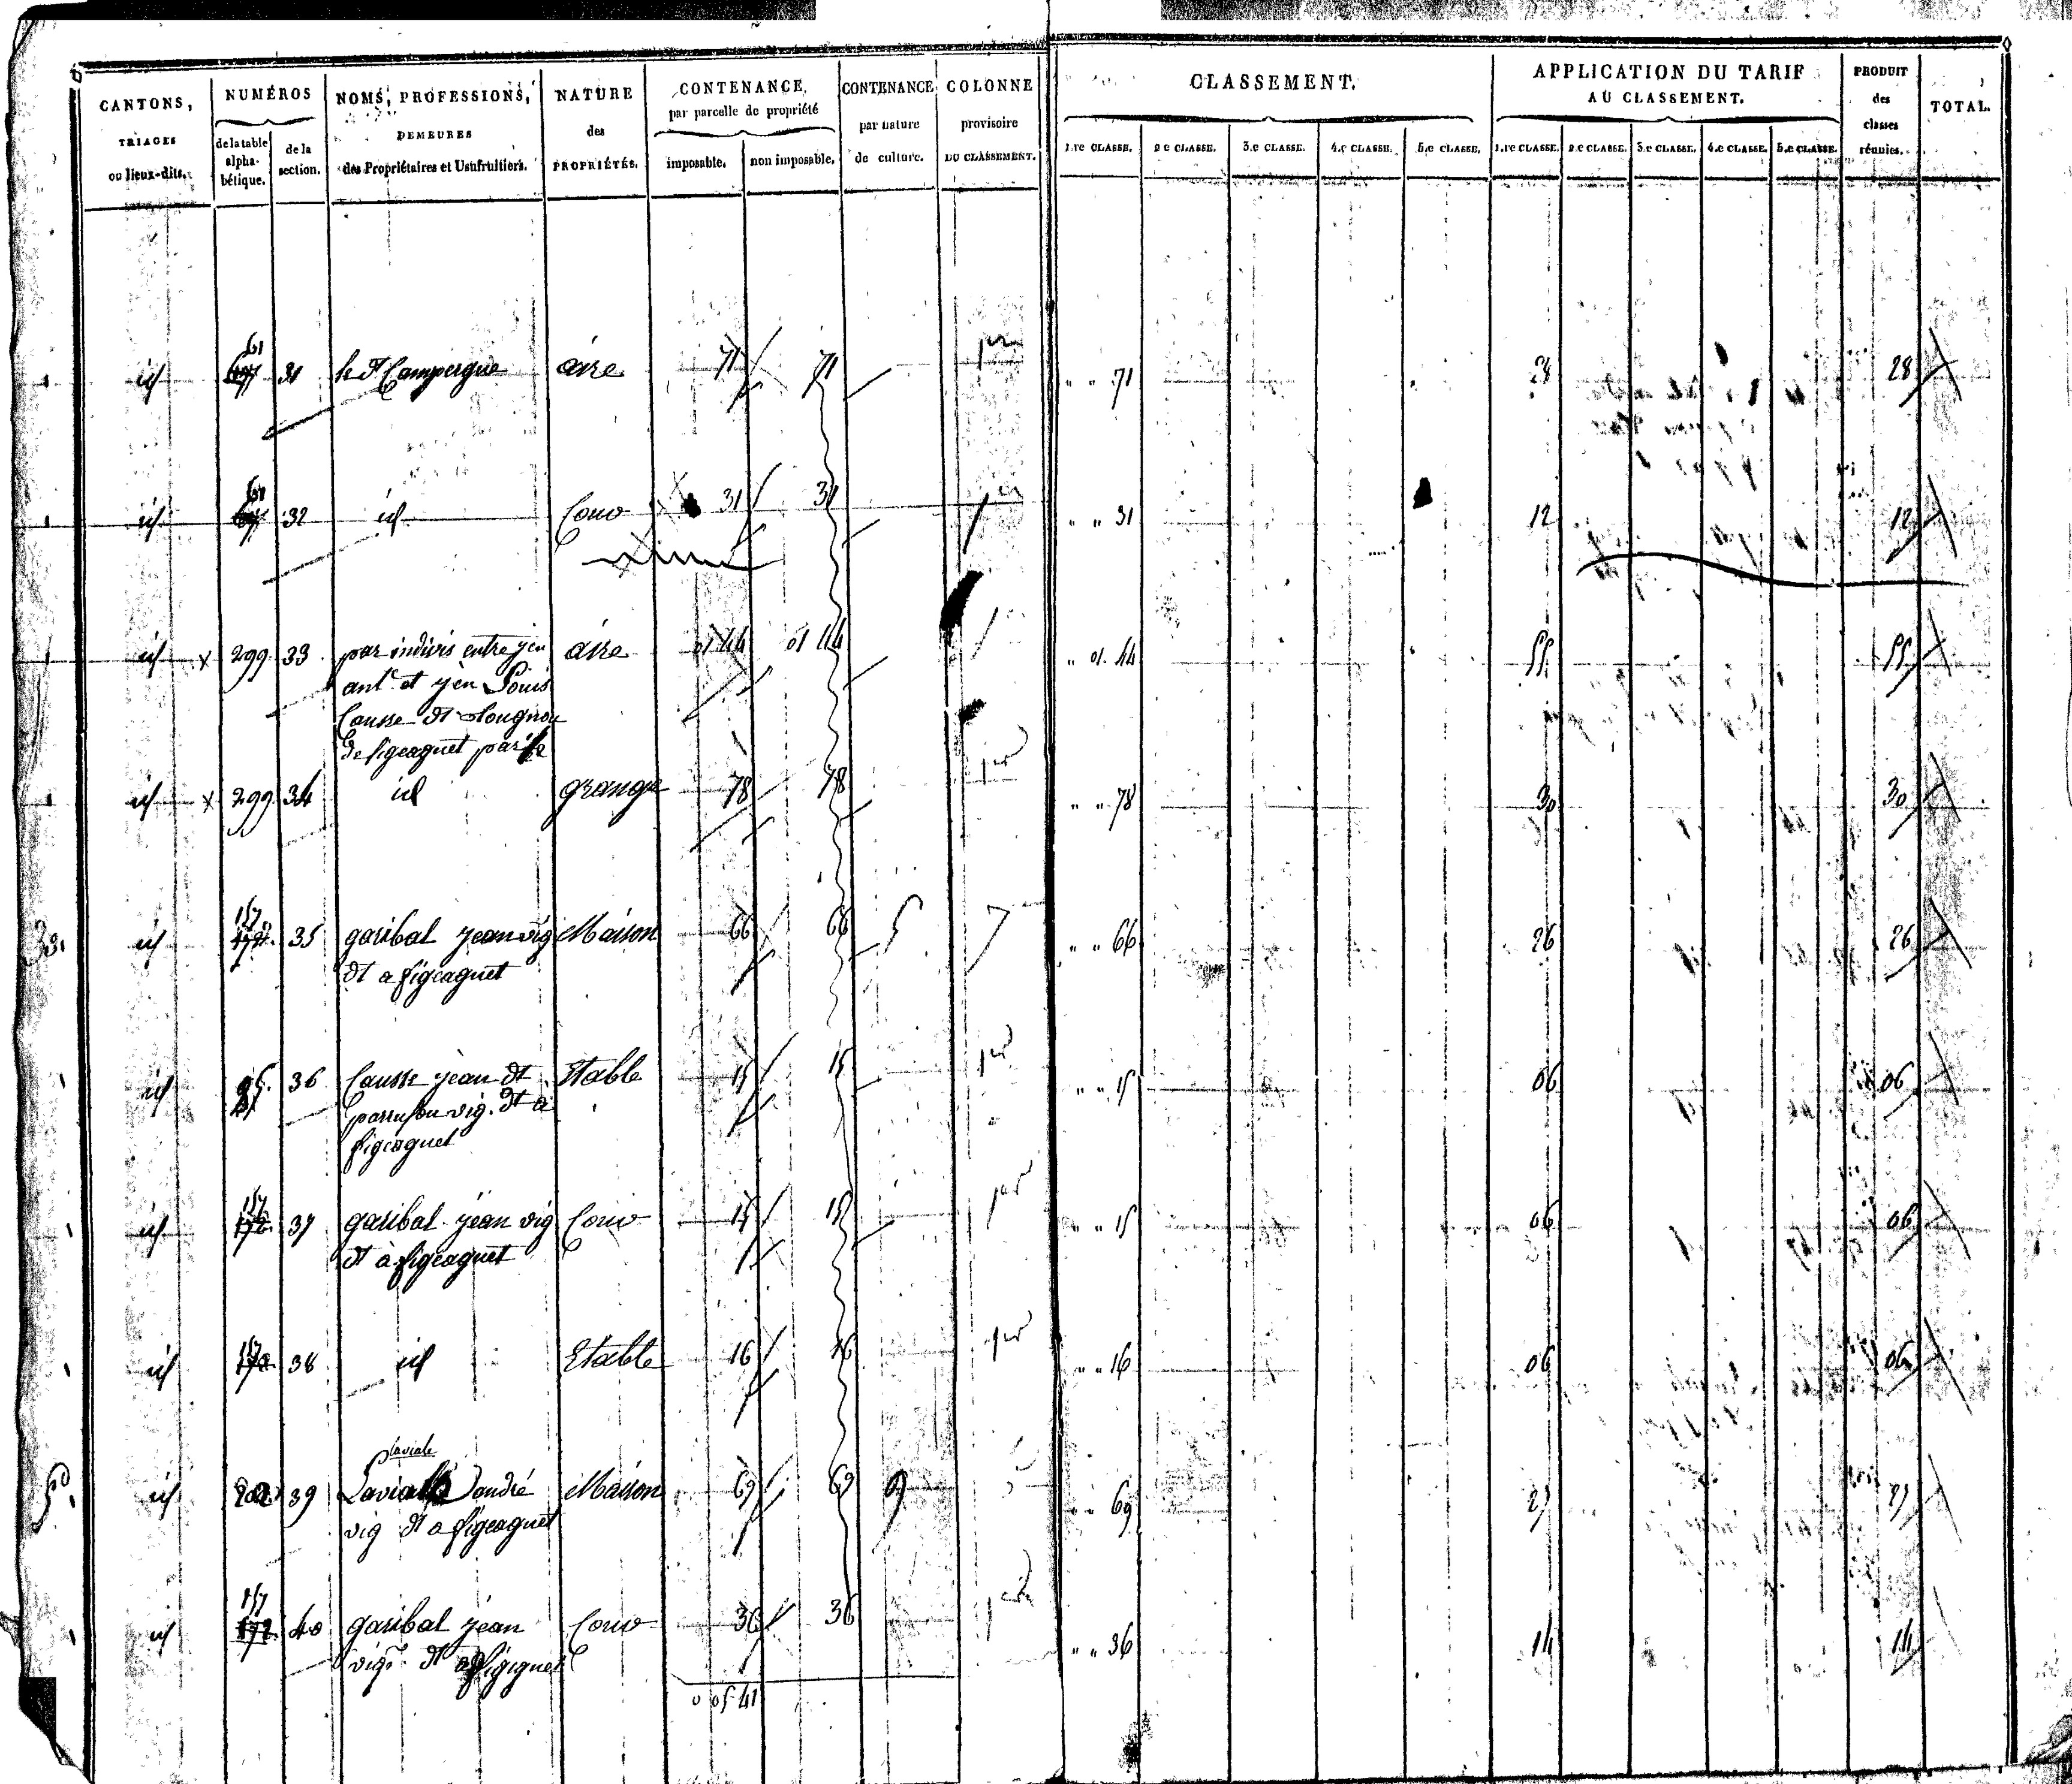 CANTONS, TRIAGES ou lieux-dits.
NUMÉROS
de la table alpha-bétique.
de la section.
NOMS, PROFESSIONS, DEMEURES des Propriétaires et Usufruitiers.
NATURE des PROPRIÉTÉS.
CONTENANCE, par parcelle de propriété
imposable.
non imposable.
CONTENANCE par nature de culture.
COLONNE provisoire DU CLASSEMENT.
CLASSEMENT.
1.re CLASSE. 2.e CLASSE. 3.e CLASSE. 4.e CLASSE. 5.e CLASSE.
APPLICATION DU TARIF AU CLASSEMENT.
1.re CLASSE. 2.e CLASSE. 3.e CLASSE. 4.e CLASSE. 5.e CLASSE.
PRODUIT des classes réunies.
TOTAL.
61
id 31 le dt Campergue aire 71 71 1er " " 71 28 28
61
id 32 id Couv 31 31 1er " " 31 12 12
id x 299 33 par indivis entre jen aire 01 44 01 44 1 " 01 44 55 55
ant et jèn Louis
Causse dt
de figeaguet par 1/2
id x 299 34 id grange 78 78 1er " " 78 30 30
157
id 35 garibal jean vig Maison 66 66 5 7 " " 66 26 26
dt a figeaguet
id 95 36 Causse jèan dt Etable 15 15 1er " " 15 06 06
vig. dt a
figeaguet
157
id 172 37 garibal jéan vig Couv 15 15 1er " " 15 06 06
dt à figeaguet
157
id 172 38 id Etable 16 16 1er " " 16 06 06
laviale
id 202 39 andré Maison 69 69 9 " " 69 27 27
vig dt a figeaguet
157
id 172 40 garibal jéan Couv 36 36 1er " " 36 14 14
vign dt a figiguet
0 05 41